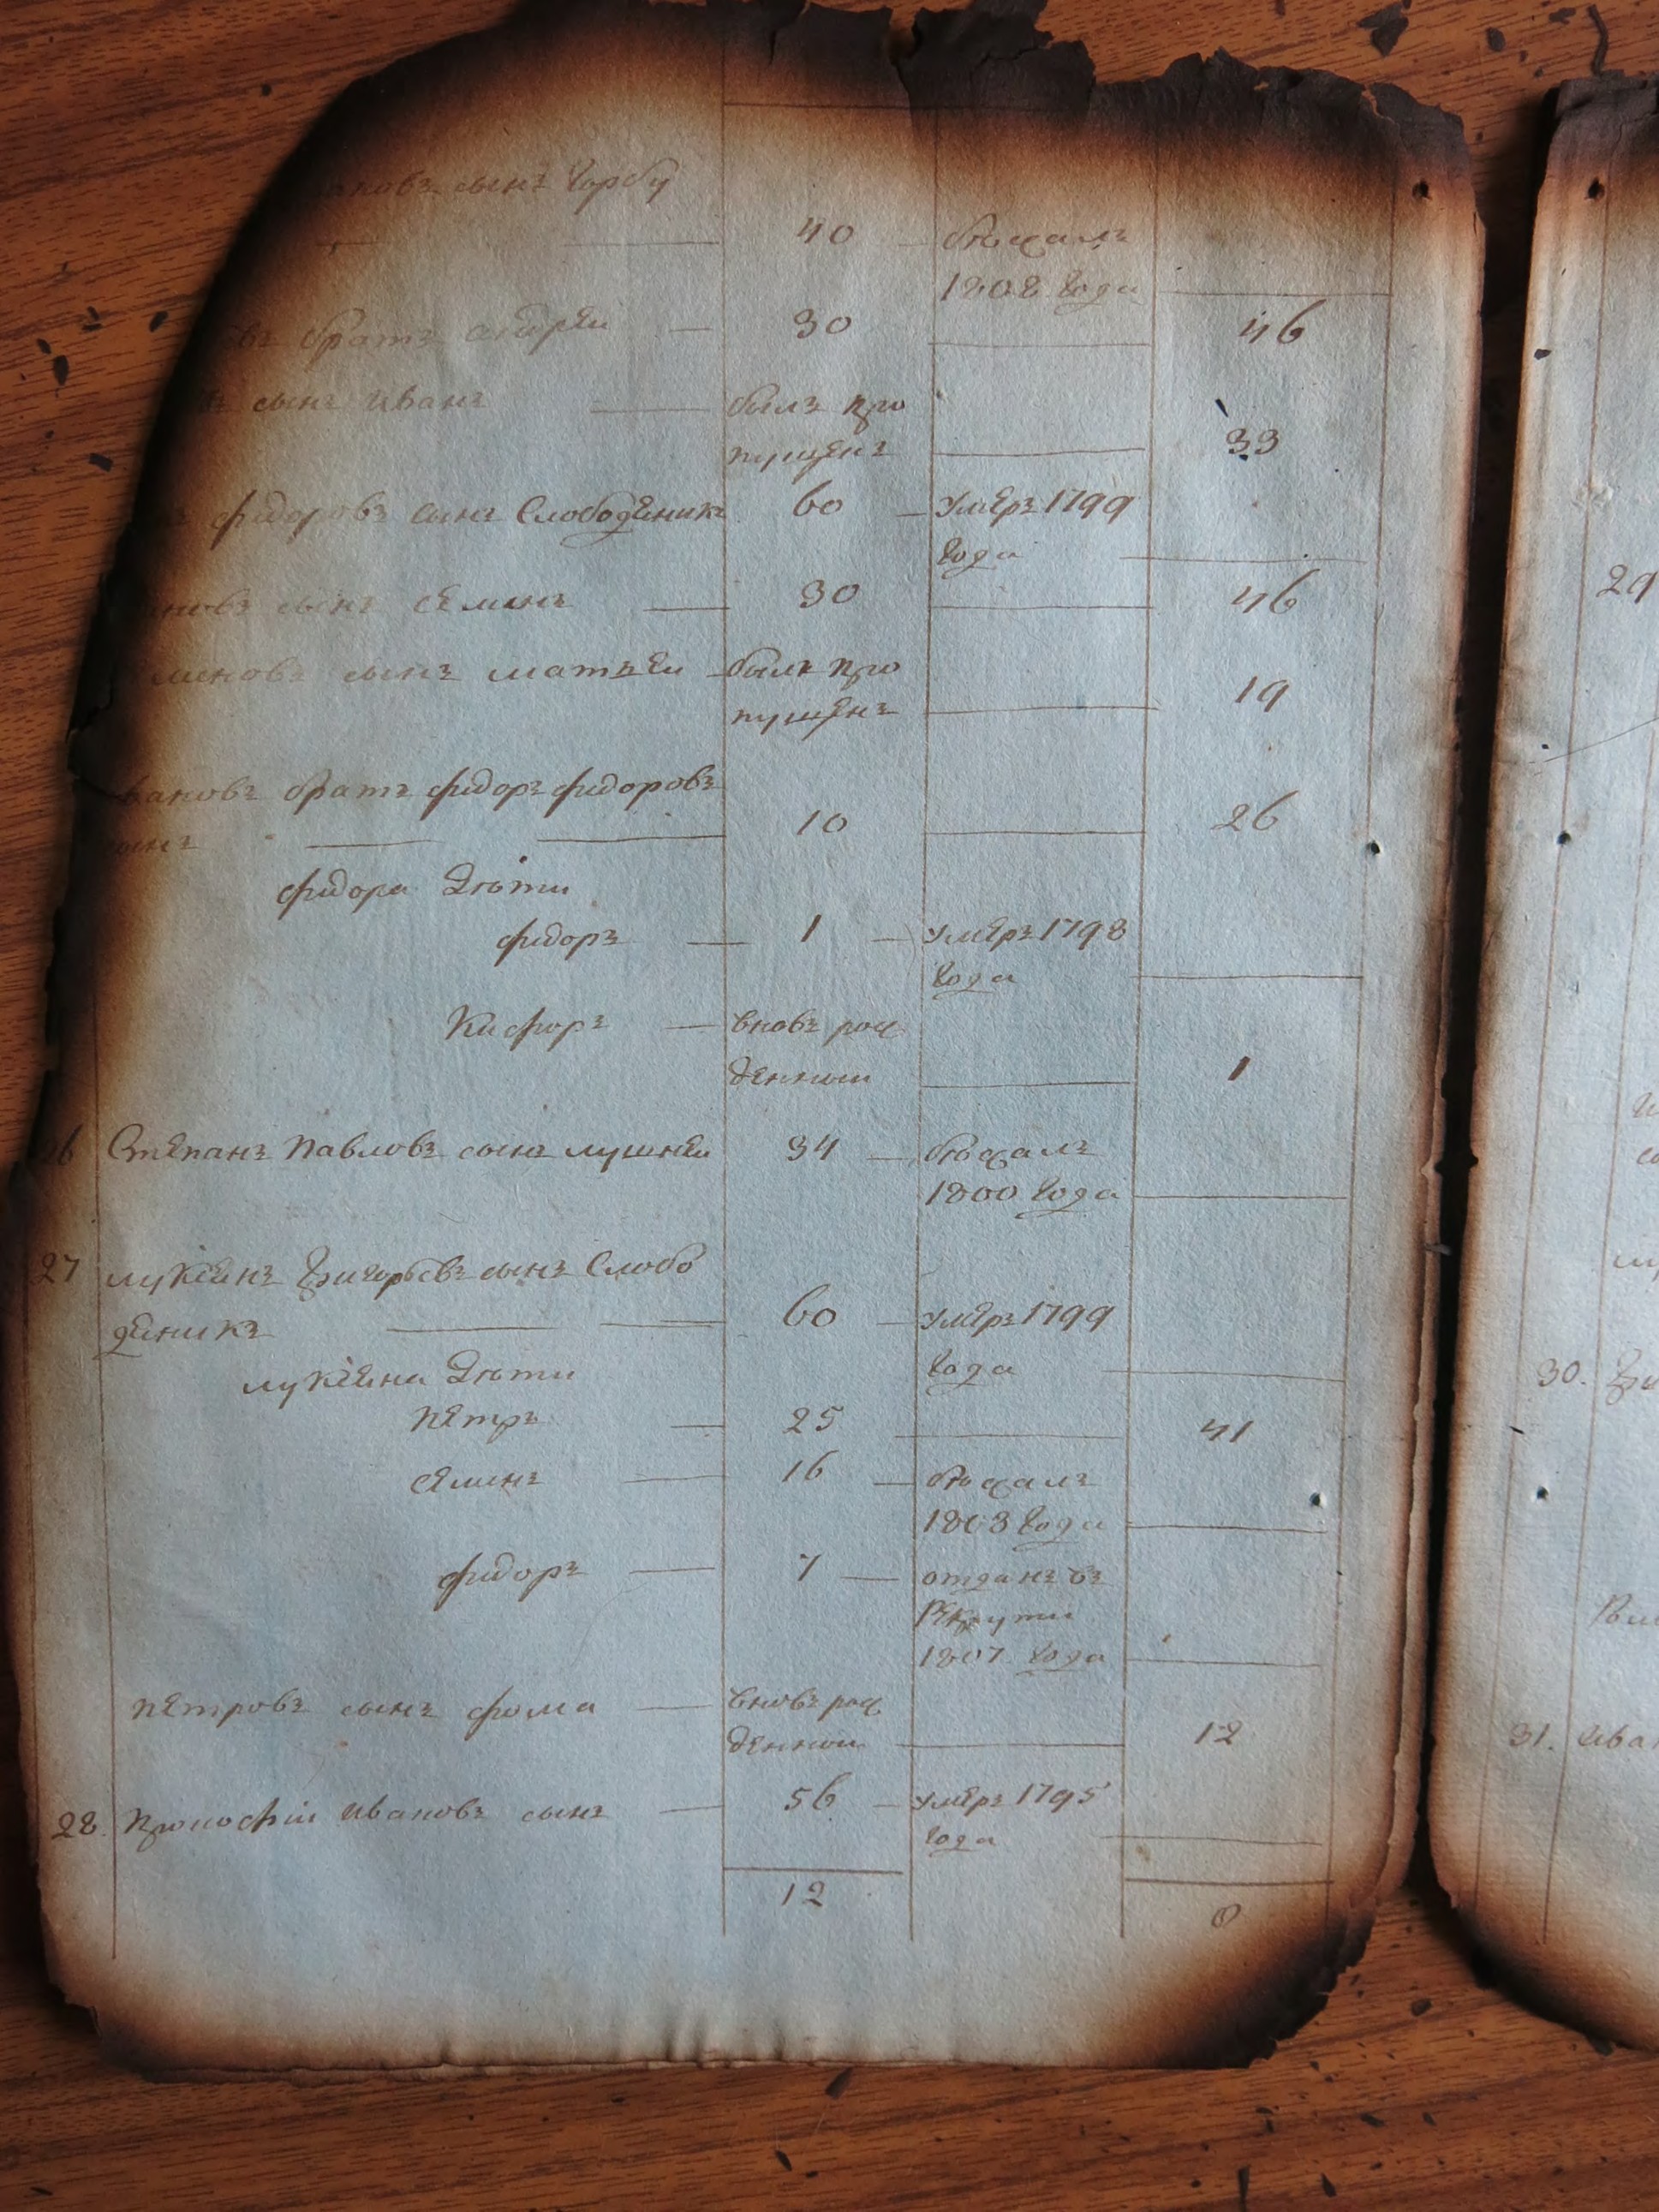 сынъ Горбу
40 бѣжалъ
1808 года
братъ андрей 30 46
сынъ иванъ былъ про
пущенъ 33
фидоровъ сынъ Слободяникъ 60 умеръ 1799
года
сынъ семинъ 30 46
миновъ сынъ матвей былъ про
пущенъ 19
вановъ братъ фидоръ фидоровъ
сынъ 10 26
фидора дѣти
фидоръ 1 умеръ 1798
года
Кифоръ вновь рож
денной 1
26 Степанъ Павловъ сынъ лушней 34 бѣжалъ
1800 года
27 лукьянъ Григорьевъ сынъ Слобо
деникъ 60 умеръ 1799
года
лукьяна дѣти
петръ 25 41
семинъ 16 бѣжалъ
1803 года
фидоръ 7 отданъ въ
рекруты
1807 года
петровъ сынъ фома вновь рож
денной 12
28. ивановъ сынъ 56 умеръ 1795
года
12 8
29
30.
31. ива